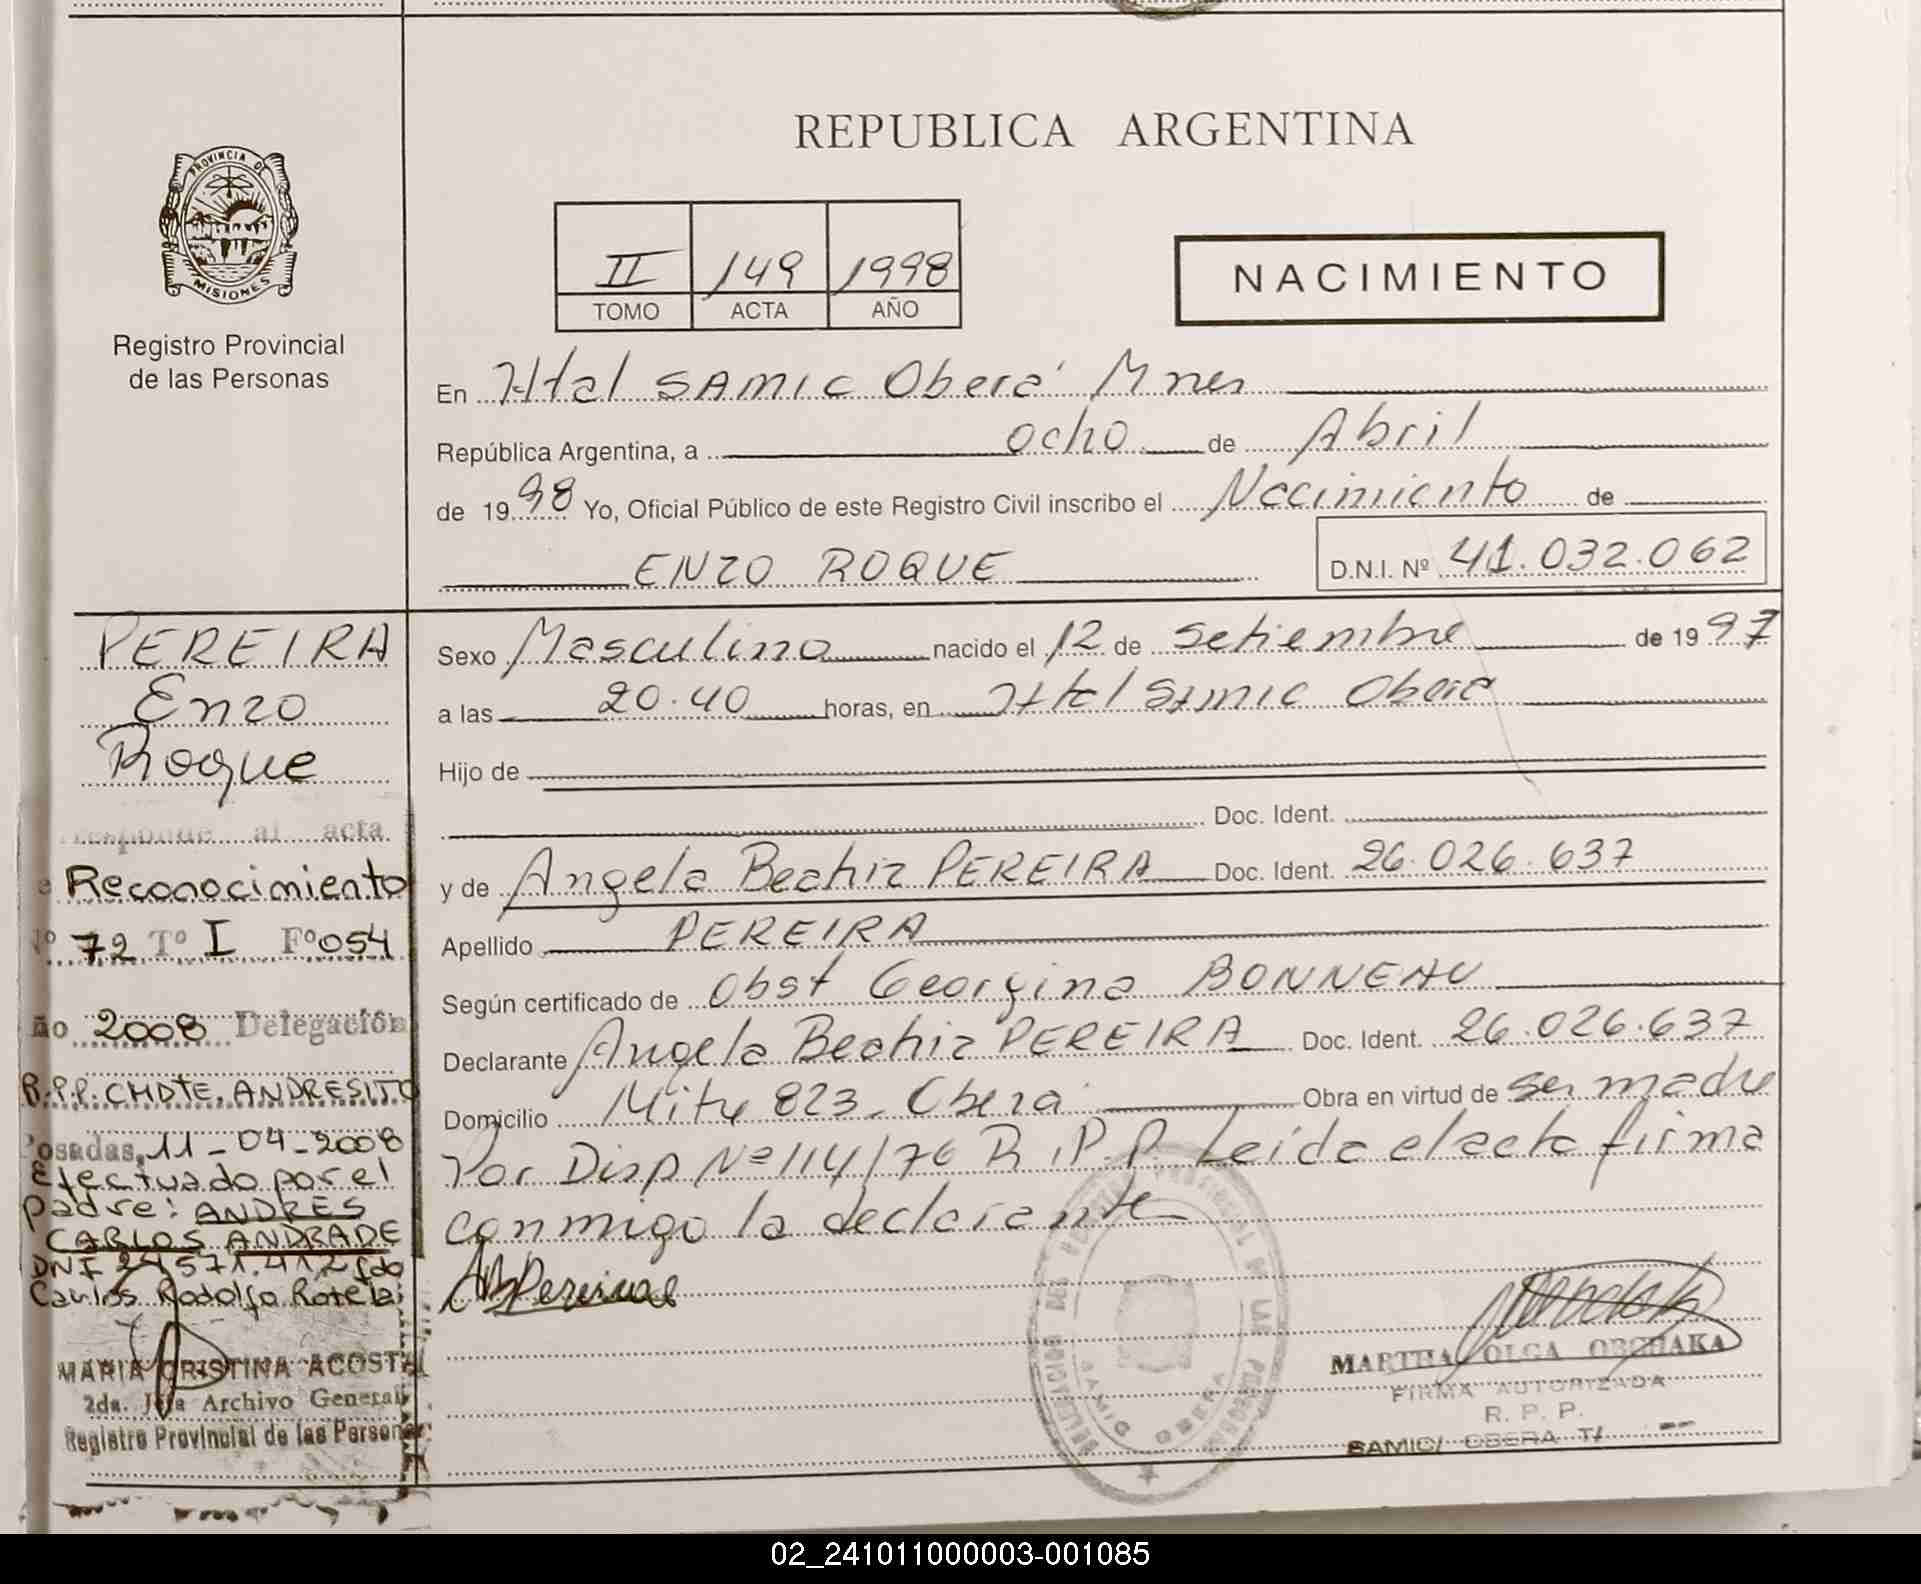 REPUBLICA ARGENTINA
PROVINCIA DE
MISIONES
Registro Provincial
de las Personas
II 149 1998
TOMO ACTA AÑO
NACIMIENTO
En Htal SAMIC Oberá Mnes
República Argentina, a ocho de Abril
de 1998 Yo, Oficial Público de este Registro Civil inscribo el Nacimiento de
ENZO ROQUE D.N.I. Nº 41.032.062
PEREIRA
Enzo
Roque
Sexo Masculino nacido el 12 de Setiembre de 1997
a las 20.40 horas, en Htal SAMIC Oberá
Hijo de
Doc. Ident.
y de Angela Beatriz PEREIRA Doc. Ident. 26.026.637
Apellido PEREIRA
Según certificado de Obst Georgina BONNEAU
Declarante Angela Beatriz PEREIRA Doc. Ident. 26.026.637
Domicilio Mitre 823 Oberá Obra en virtud de ser madre
Por Disp Nº 114/76 R.P.P. Leída el acta firma
conmigo la declarante
al acta
Reconocimiento
Nº 72 Tº I Fº 054
2008 Delegación
R.P.P. CMDTE. ANDRESITO
Posadas, 11-04-2008
Efectuado por el
padre: ANDRES
CARLOS ANDRADE
DNI 24.571.412 fdo
Carlos Rodolfo Rotela
MARIA CRISTINA ACOSTA
2da. Jefa Archivo General
Registro Provincial de las Personas
ABPereira
DELEGACION DEL REGISTRO PROVINCIAL DE LAS PERSONAS
SAMIC OBERA
MARTHA OLGA OBCHAKA
FIRMA AUTORIZADA
R. P. P.
SAMIC/ OBERA T/
02_241011000003-001085